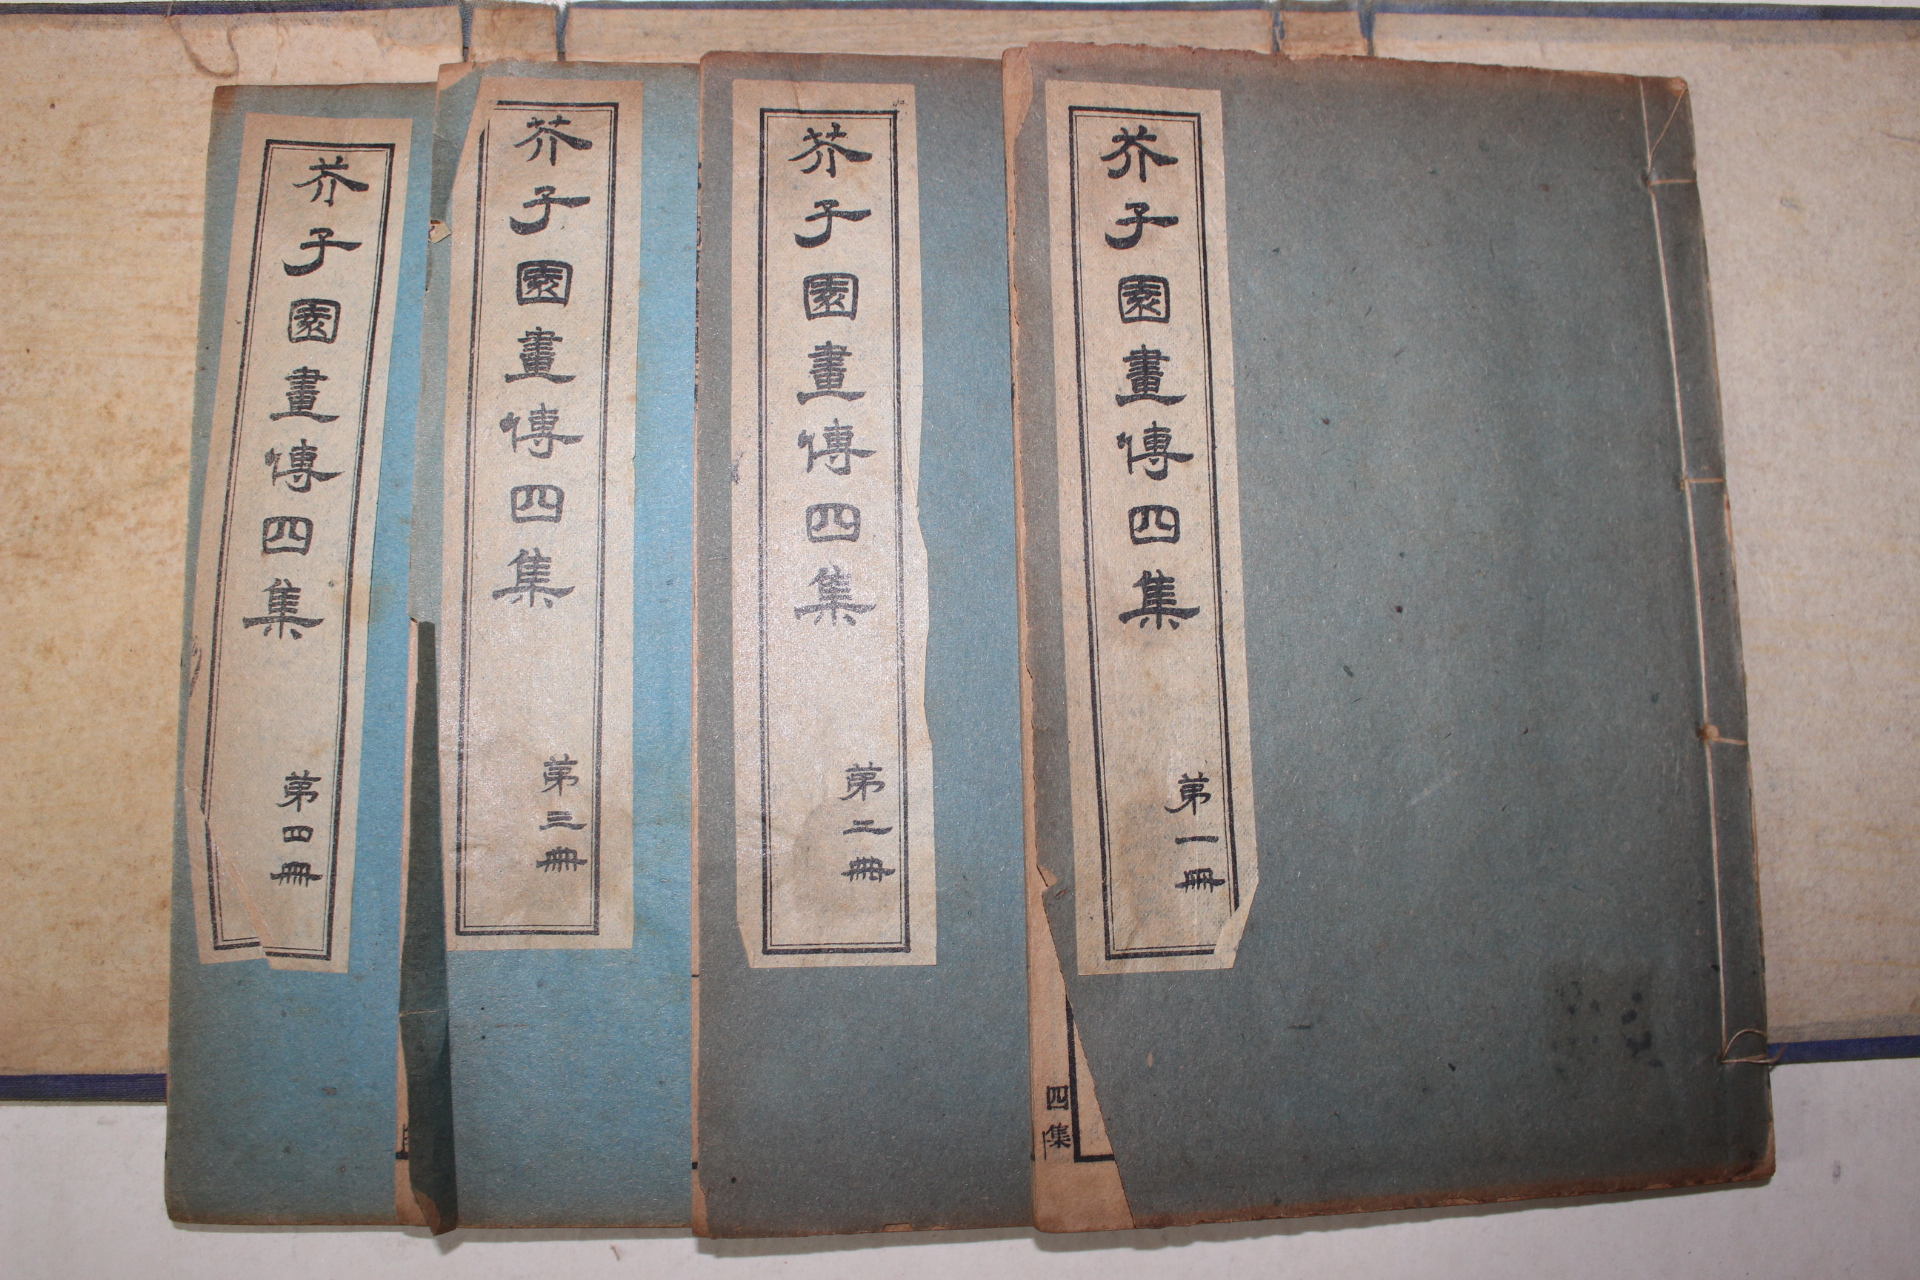 芥子園畫傳四集
第一冊
四集
芥子園畫傳四集
第二冊
芥子園畫傳四集
第三冊
芥子園畫傳四集
第四冊